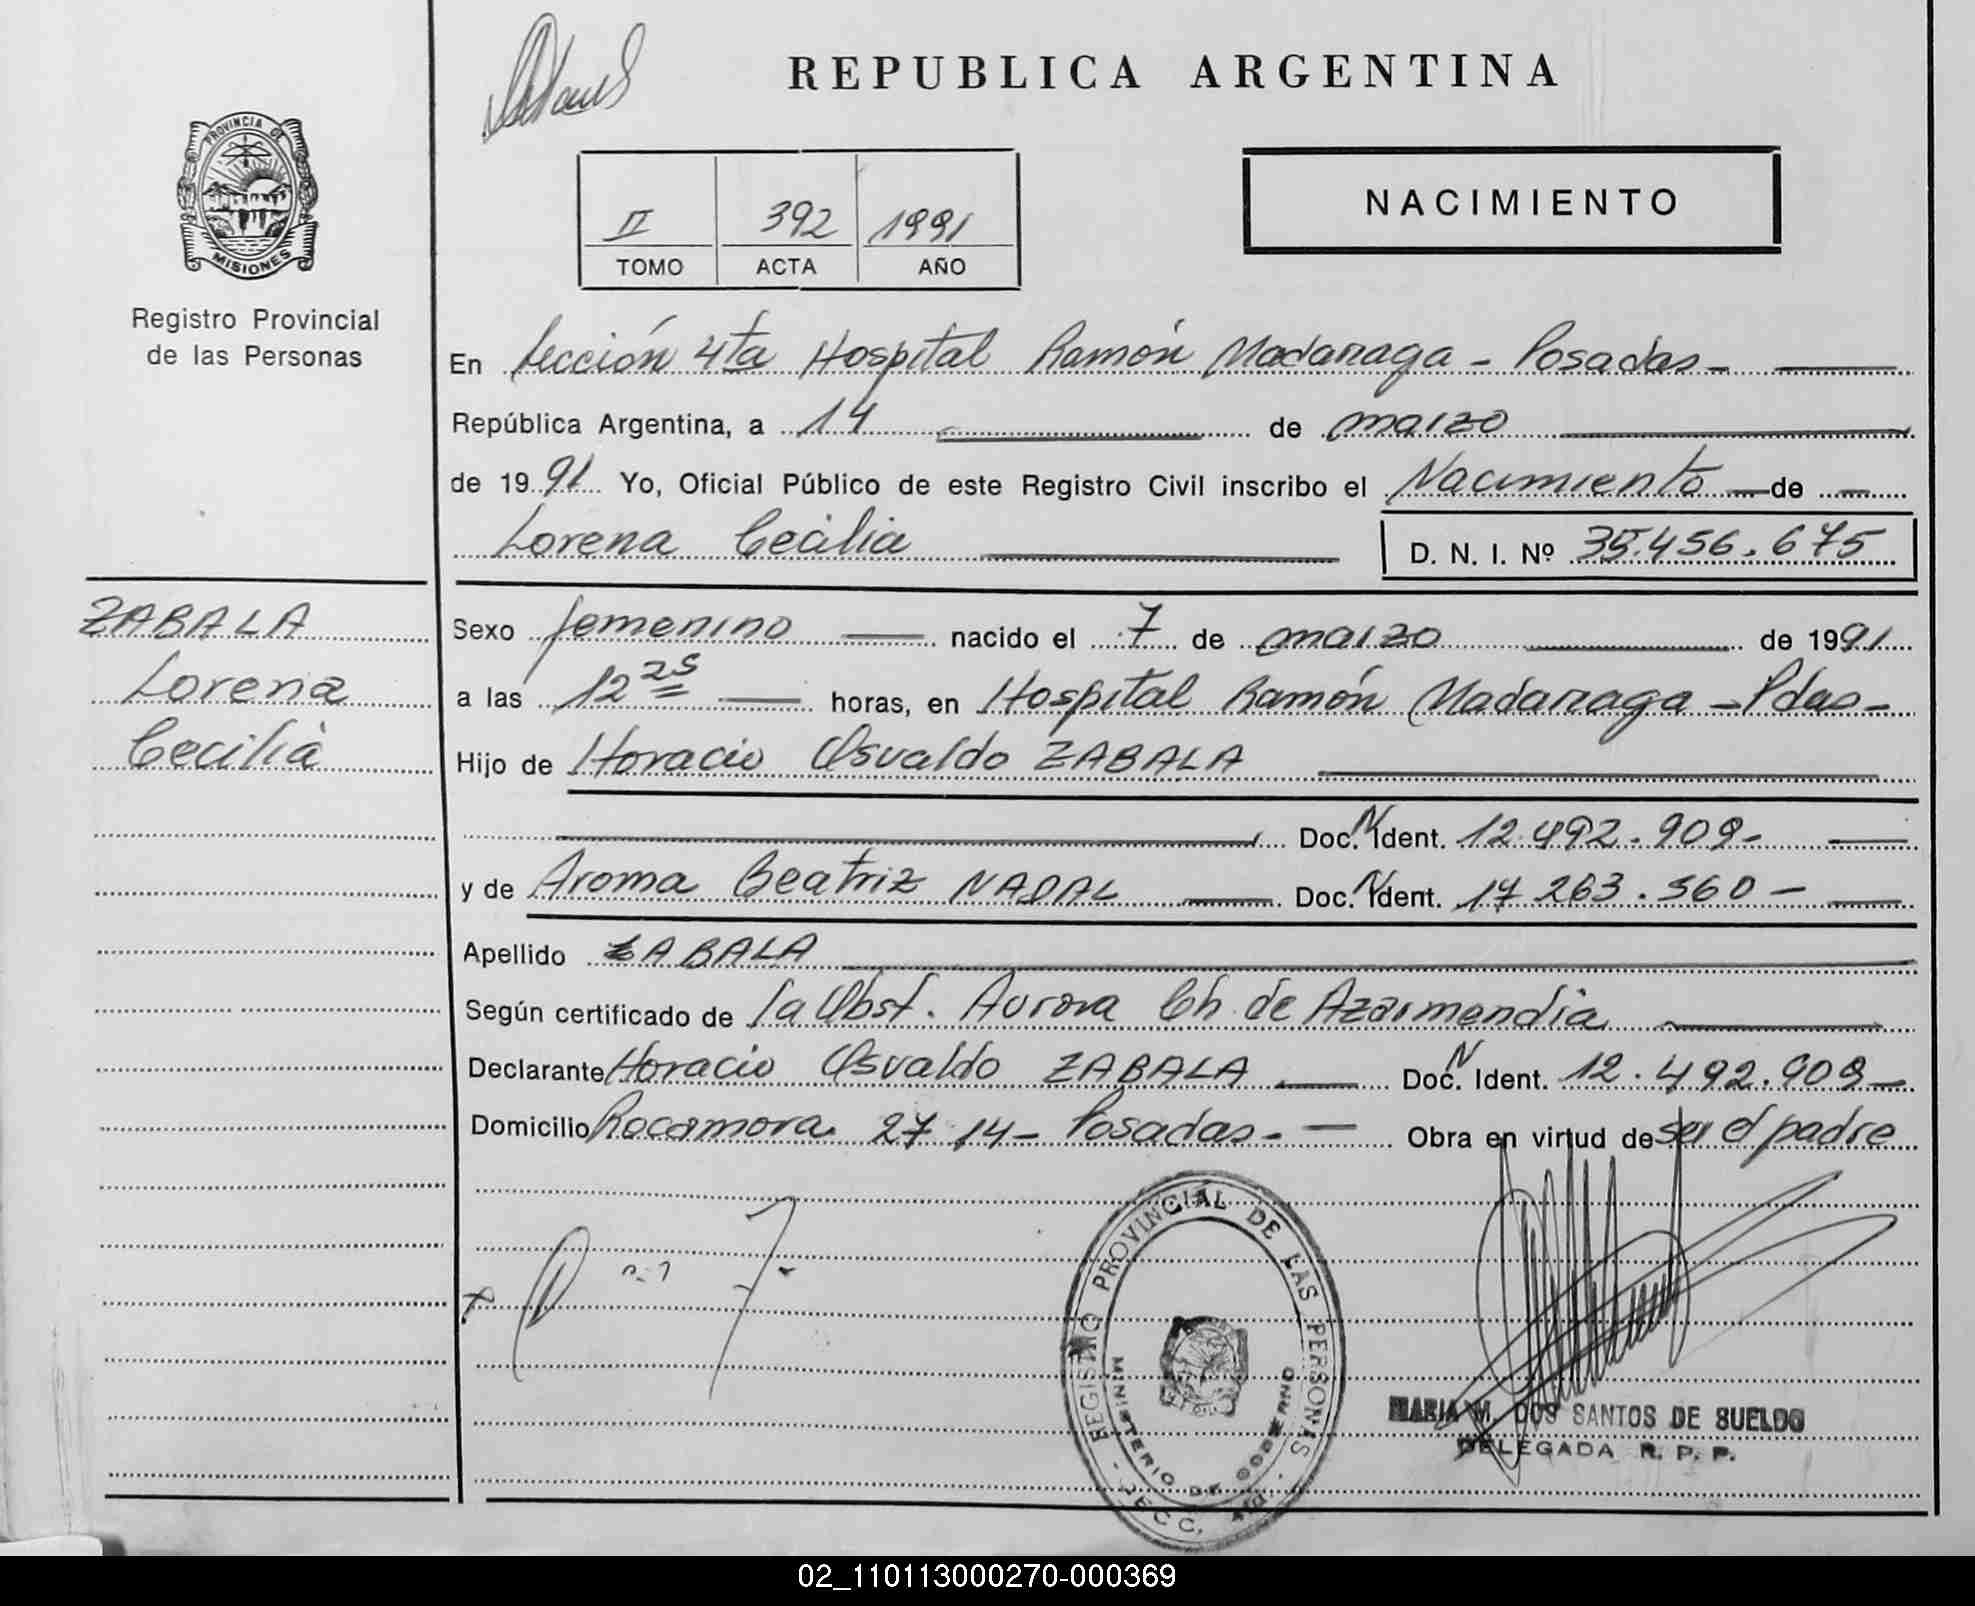 REPUBLICA ARGENTINA
PROVINCIA DE
MISIONES
Registro Provincial
de las Personas
II 392 1991
TOMO ACTA AÑO
NACIMIENTO
En Sección 4ta Hospital Ramón Madariaga - Posadas -
República Argentina, a 14 de marzo
de 1991 Yo, Oficial Público de este Registro Civil inscribo el Nacimiento de
Lorena Cecilia
D. N. I. Nº 35.456.675
ZABALA
Lorena
Cecilia
Sexo femenino nacido el 7 de marzo de 1991
a las 12 25 horas, en Hospital Ramón Madariaga - Pdas -
Hijo de Horacio Osvaldo ZABALA
Doc. N Ident. 12.492.909-
y de Aroma Beatriz NADAL Doc. N Ident. 17 263.360 -
Apellido ZABALA
Según certificado de la Obst. Aurora Ch. de Azarmendia
Declarante Horacio Osvaldo ZABALA Doc. N Ident. 12.492.909 -
Domicilio Rocamora 27 14 - Posadas - Obra en virtud de ser el padre
REGISTRO PROVINCIAL DE LAS PERSONAS
MINISTERIO DE GOBIERNO
SECC. 4ta
MARIA M. DOS SANTOS DE SUELDO
DELEGADA R. P. P.
02_110113000270-000369